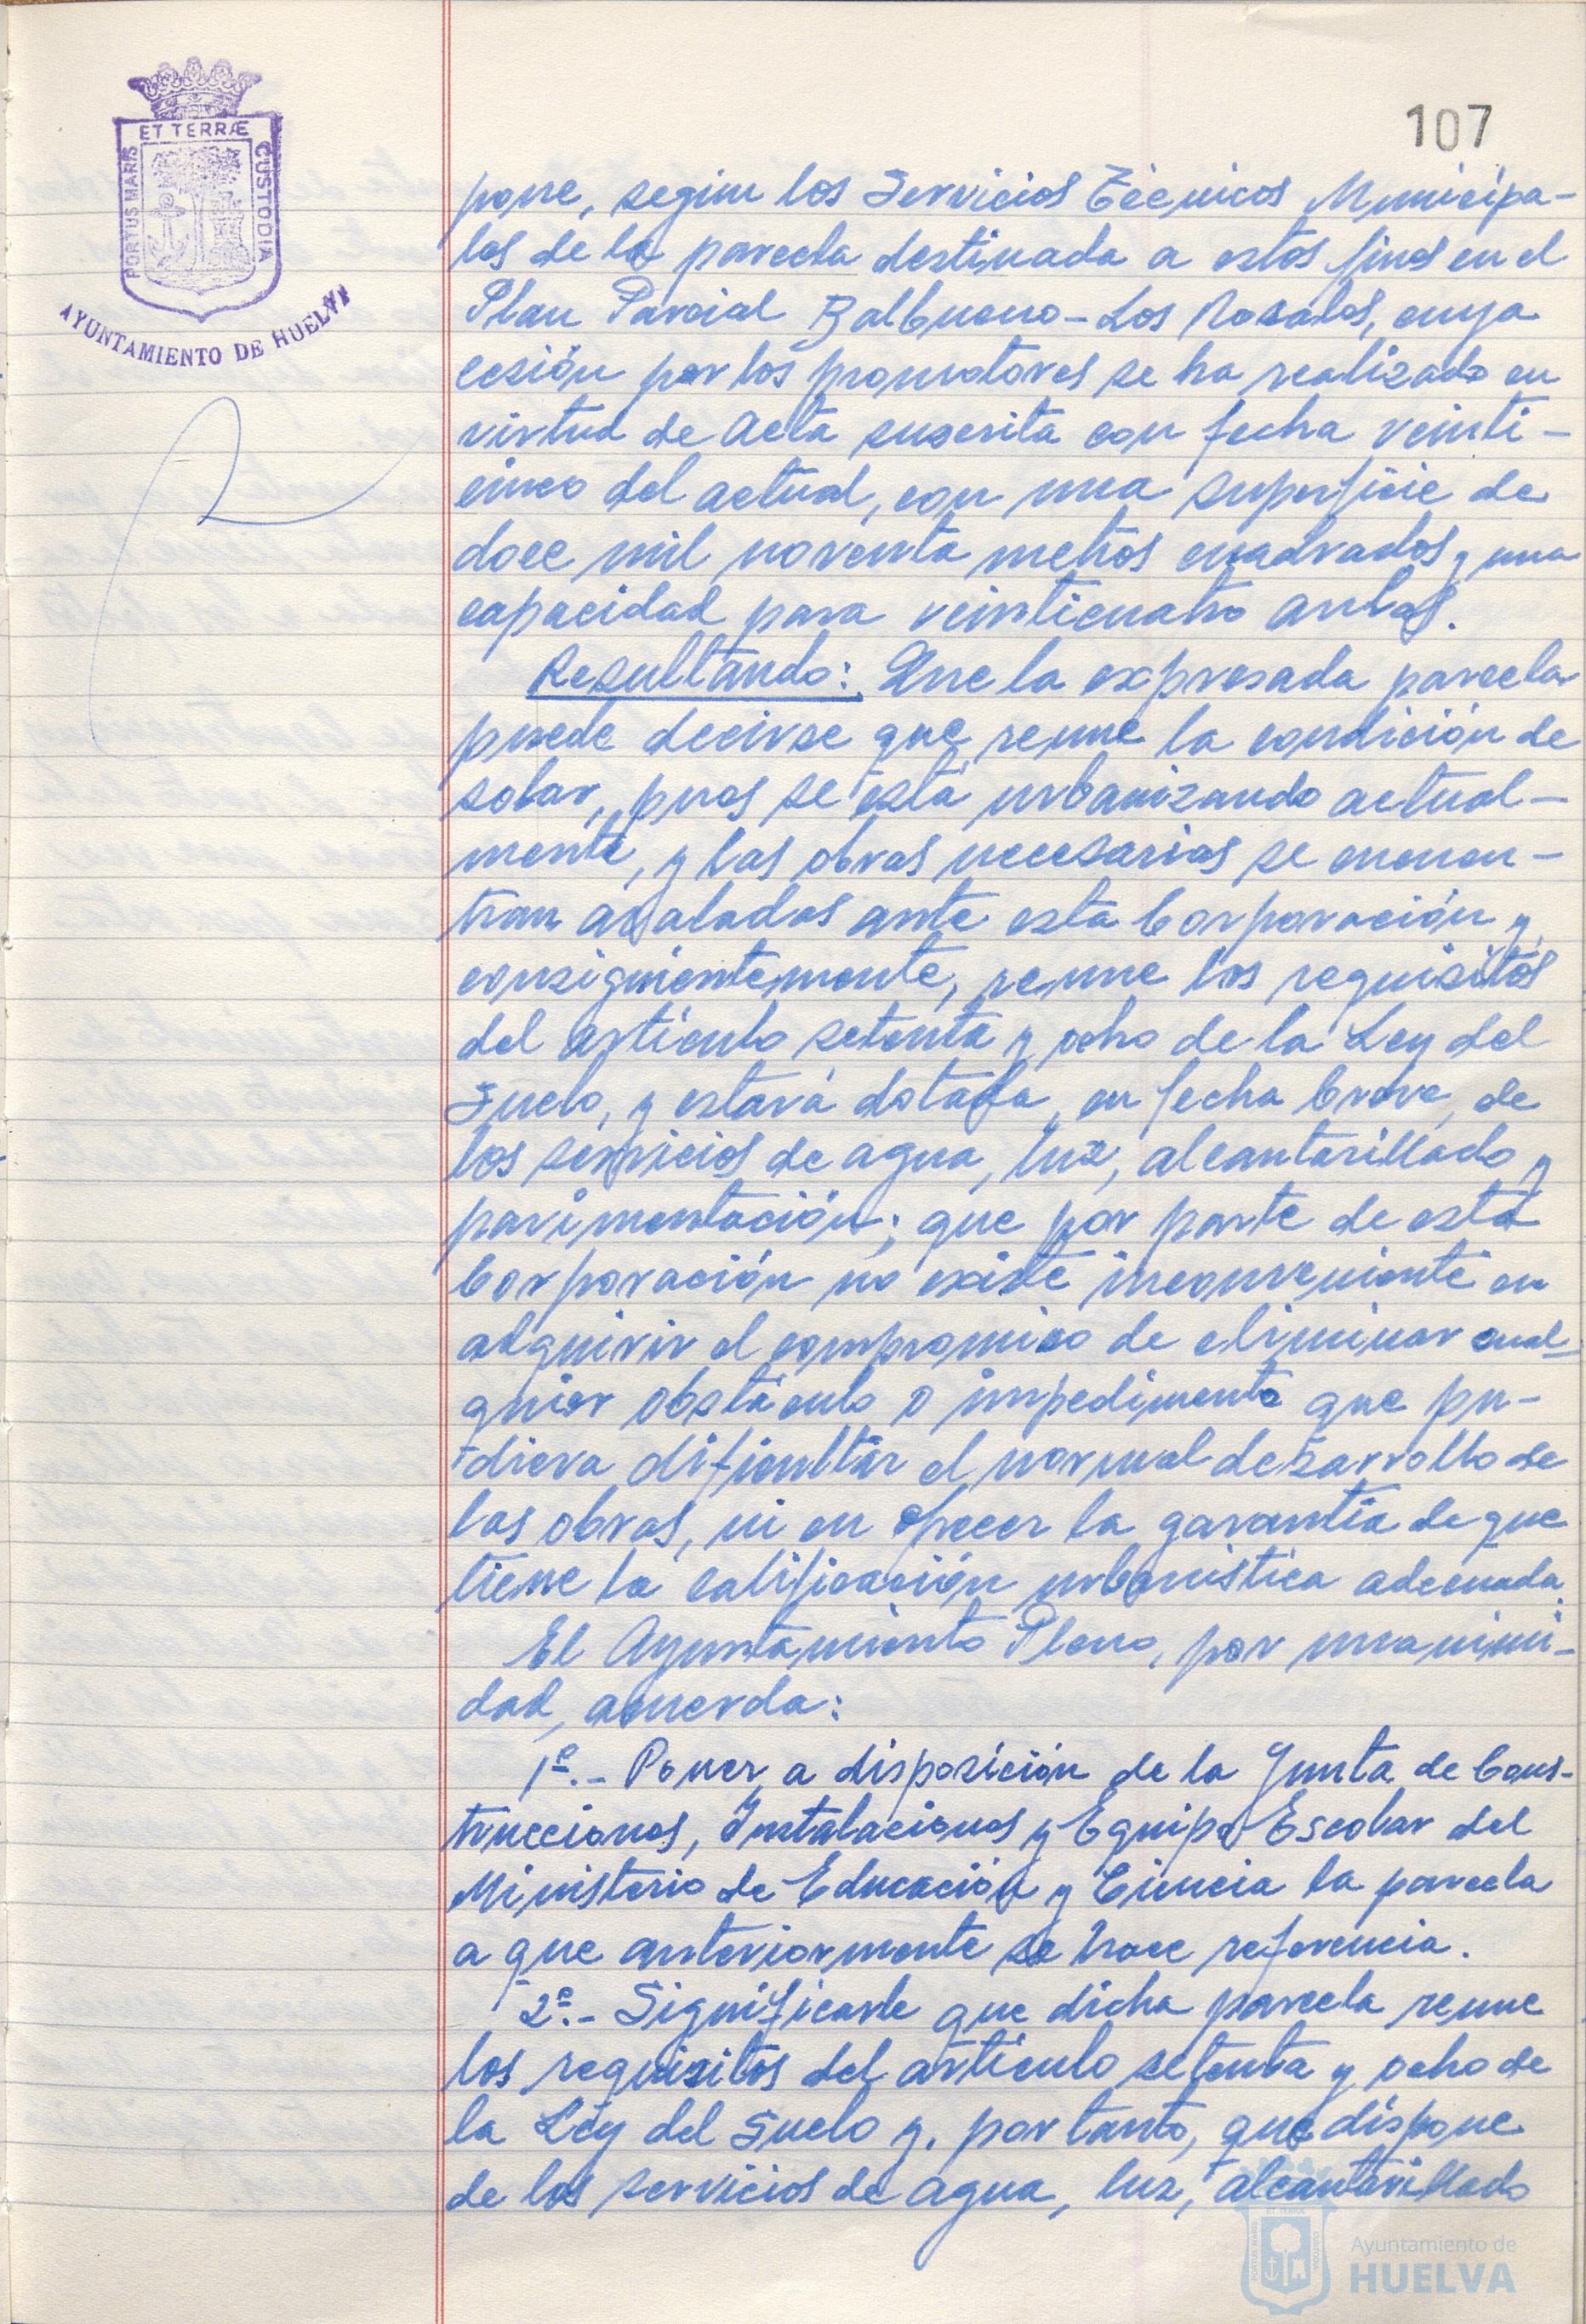 107
ET TERRÆ
PORTUS MARIS
CUSTODIA
AYUNTAMIENTO DE HUELVA
pone, segun los Servicios Técnicos Municipa-
les de la parcela destinada a estos fines en el
Plan Parcial Balbueno-Los Rosales, cuya
cesión por los promotores se ha realizado en
virtud de Acta suscrita con fecha veinti-
cinco del actual, con una superficie de
doce mil noventa metros cuadrados y una
capacidad para veinticuatro aulas.
Resultando: Que la expresada parcela
puede decirse que reune la condición de
solar, pues se está urbanizando actual-
mente, y las obras necesarias se encuen-
tran avaladas ante esta Corporación y,
consiguientemente, reune los requisitos
del artículo setenta y ocho de la Ley del
Suelo, y estará dotada, en fecha breve, de
los servicios de agua, luz, alcantarillado y
pavimentación; que por parte de esta
Corporación no existe inconveniente en
adquirir el compromiso de eliminar cual-
quier obstáculo o impedimento que pu-
diera dificultar el normal desarrollo de
las obras, ni en ofrecer la garantía de que
tiene la calificación urbanística adecuada.
El Ayuntamiento Pleno, por unanimi-
dad, acuerda:
1º.- Poner a disposición de la Junta de Cons-
trucciones, Instalaciones y Equipo Escolar del
Ministerio de Educación y Ciencia la parcela
a que anteriormente se hace referencia.
2º.- Significarle que dicha parcela reune
los requisitos del artículo setenta y ocho de
la Ley del Suelo y, por tanto, que dispone
de los servicios de agua, luz, alcantarillado
Ayuntamiento de
HUELVA